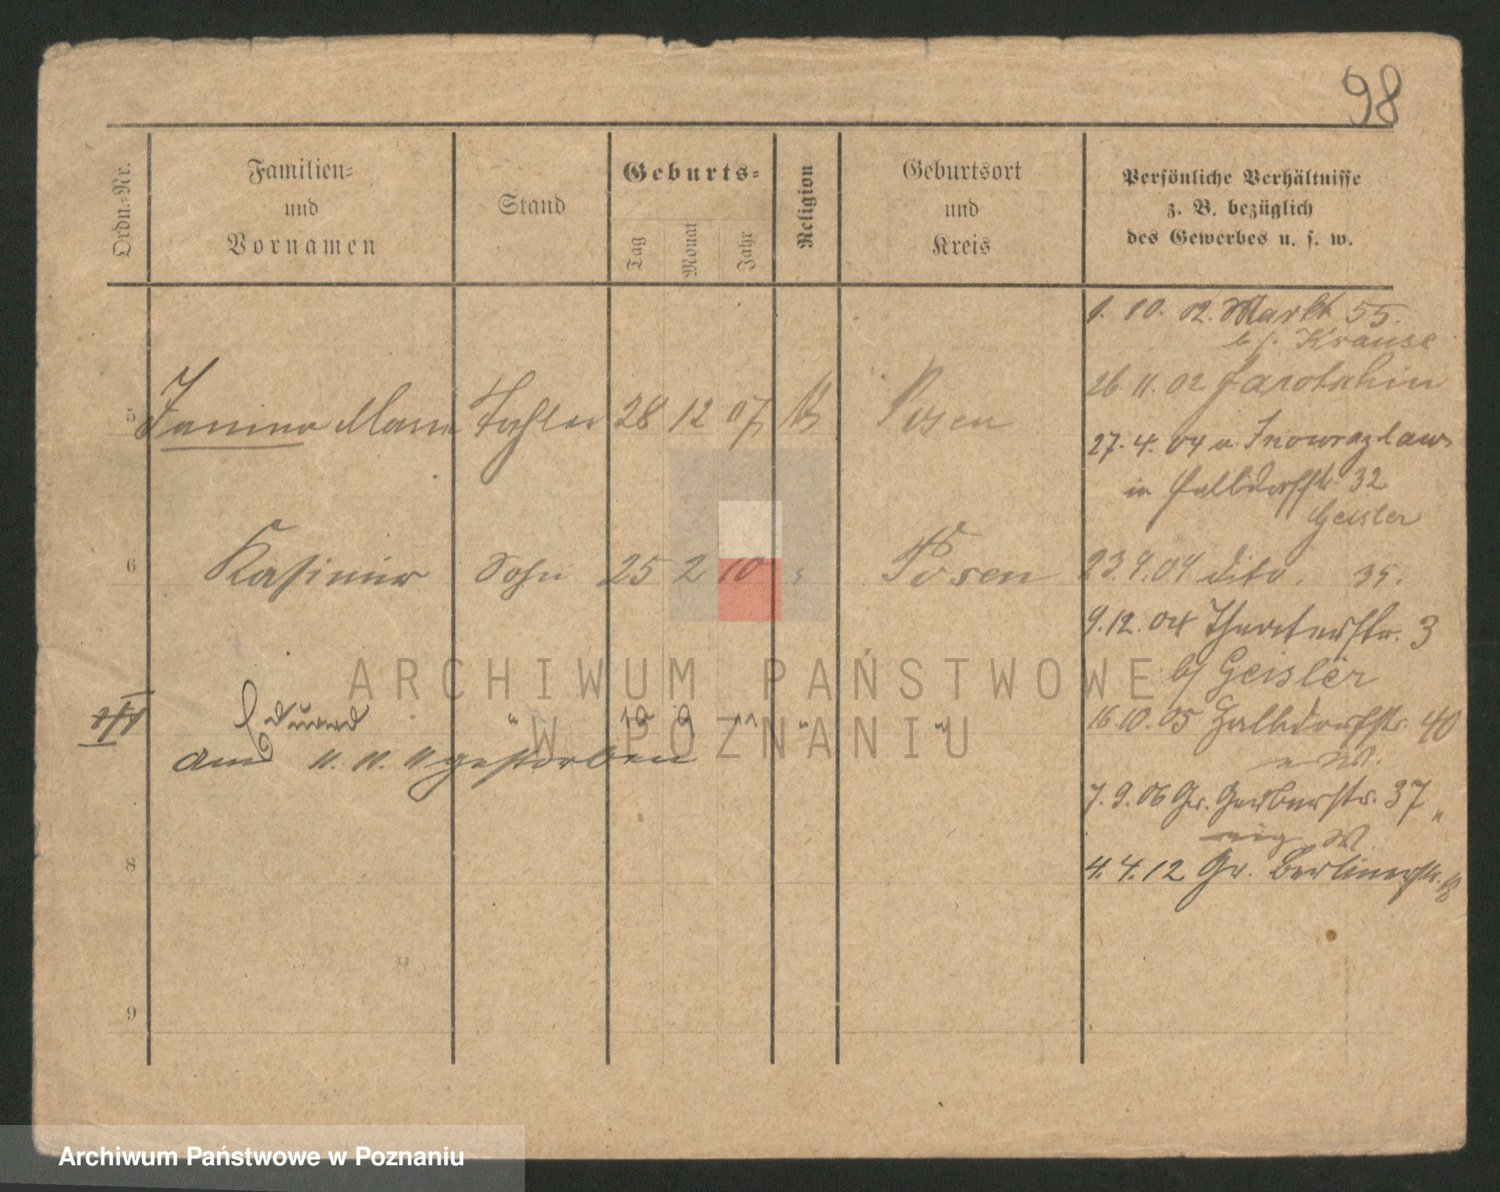 98
Ordn.-Nr.
Familien-
und
Vornamen
Stand
Geburts-
Tag
Monat
Jahr
Religion
Geburtsort
und
Kreis
Persönliche Verhältnisse
z. B. bezüglich
des Gewerbes u. s. w.
1. 10. 02. Markt 55.
b/. Krause
26. 11. 02 Jarotschin
5 Janina Marie Tochter 28 12 07 Posen
27. 4. 04 v. Inowrazlaw
in Halbdorfstr. 32
Geisler
6 Kasimir Sohn 25 2 10 Posen
23.9.04 dito. 35.
9.12.04 Theaterstr. 3
b/ Geisler
Eduard " 19 9 11 " "
16.10.05 Halbdorfstr. 40
am 11. 11. 11 gestorben
7.9.06 Gr. Gerberstr. 37
8
4.4.12 Gr. Berlinerstr.
9
ARCHIWUM PAŃSTWOWE
W POZNANIU
Archiwum Państwowe w Poznaniu